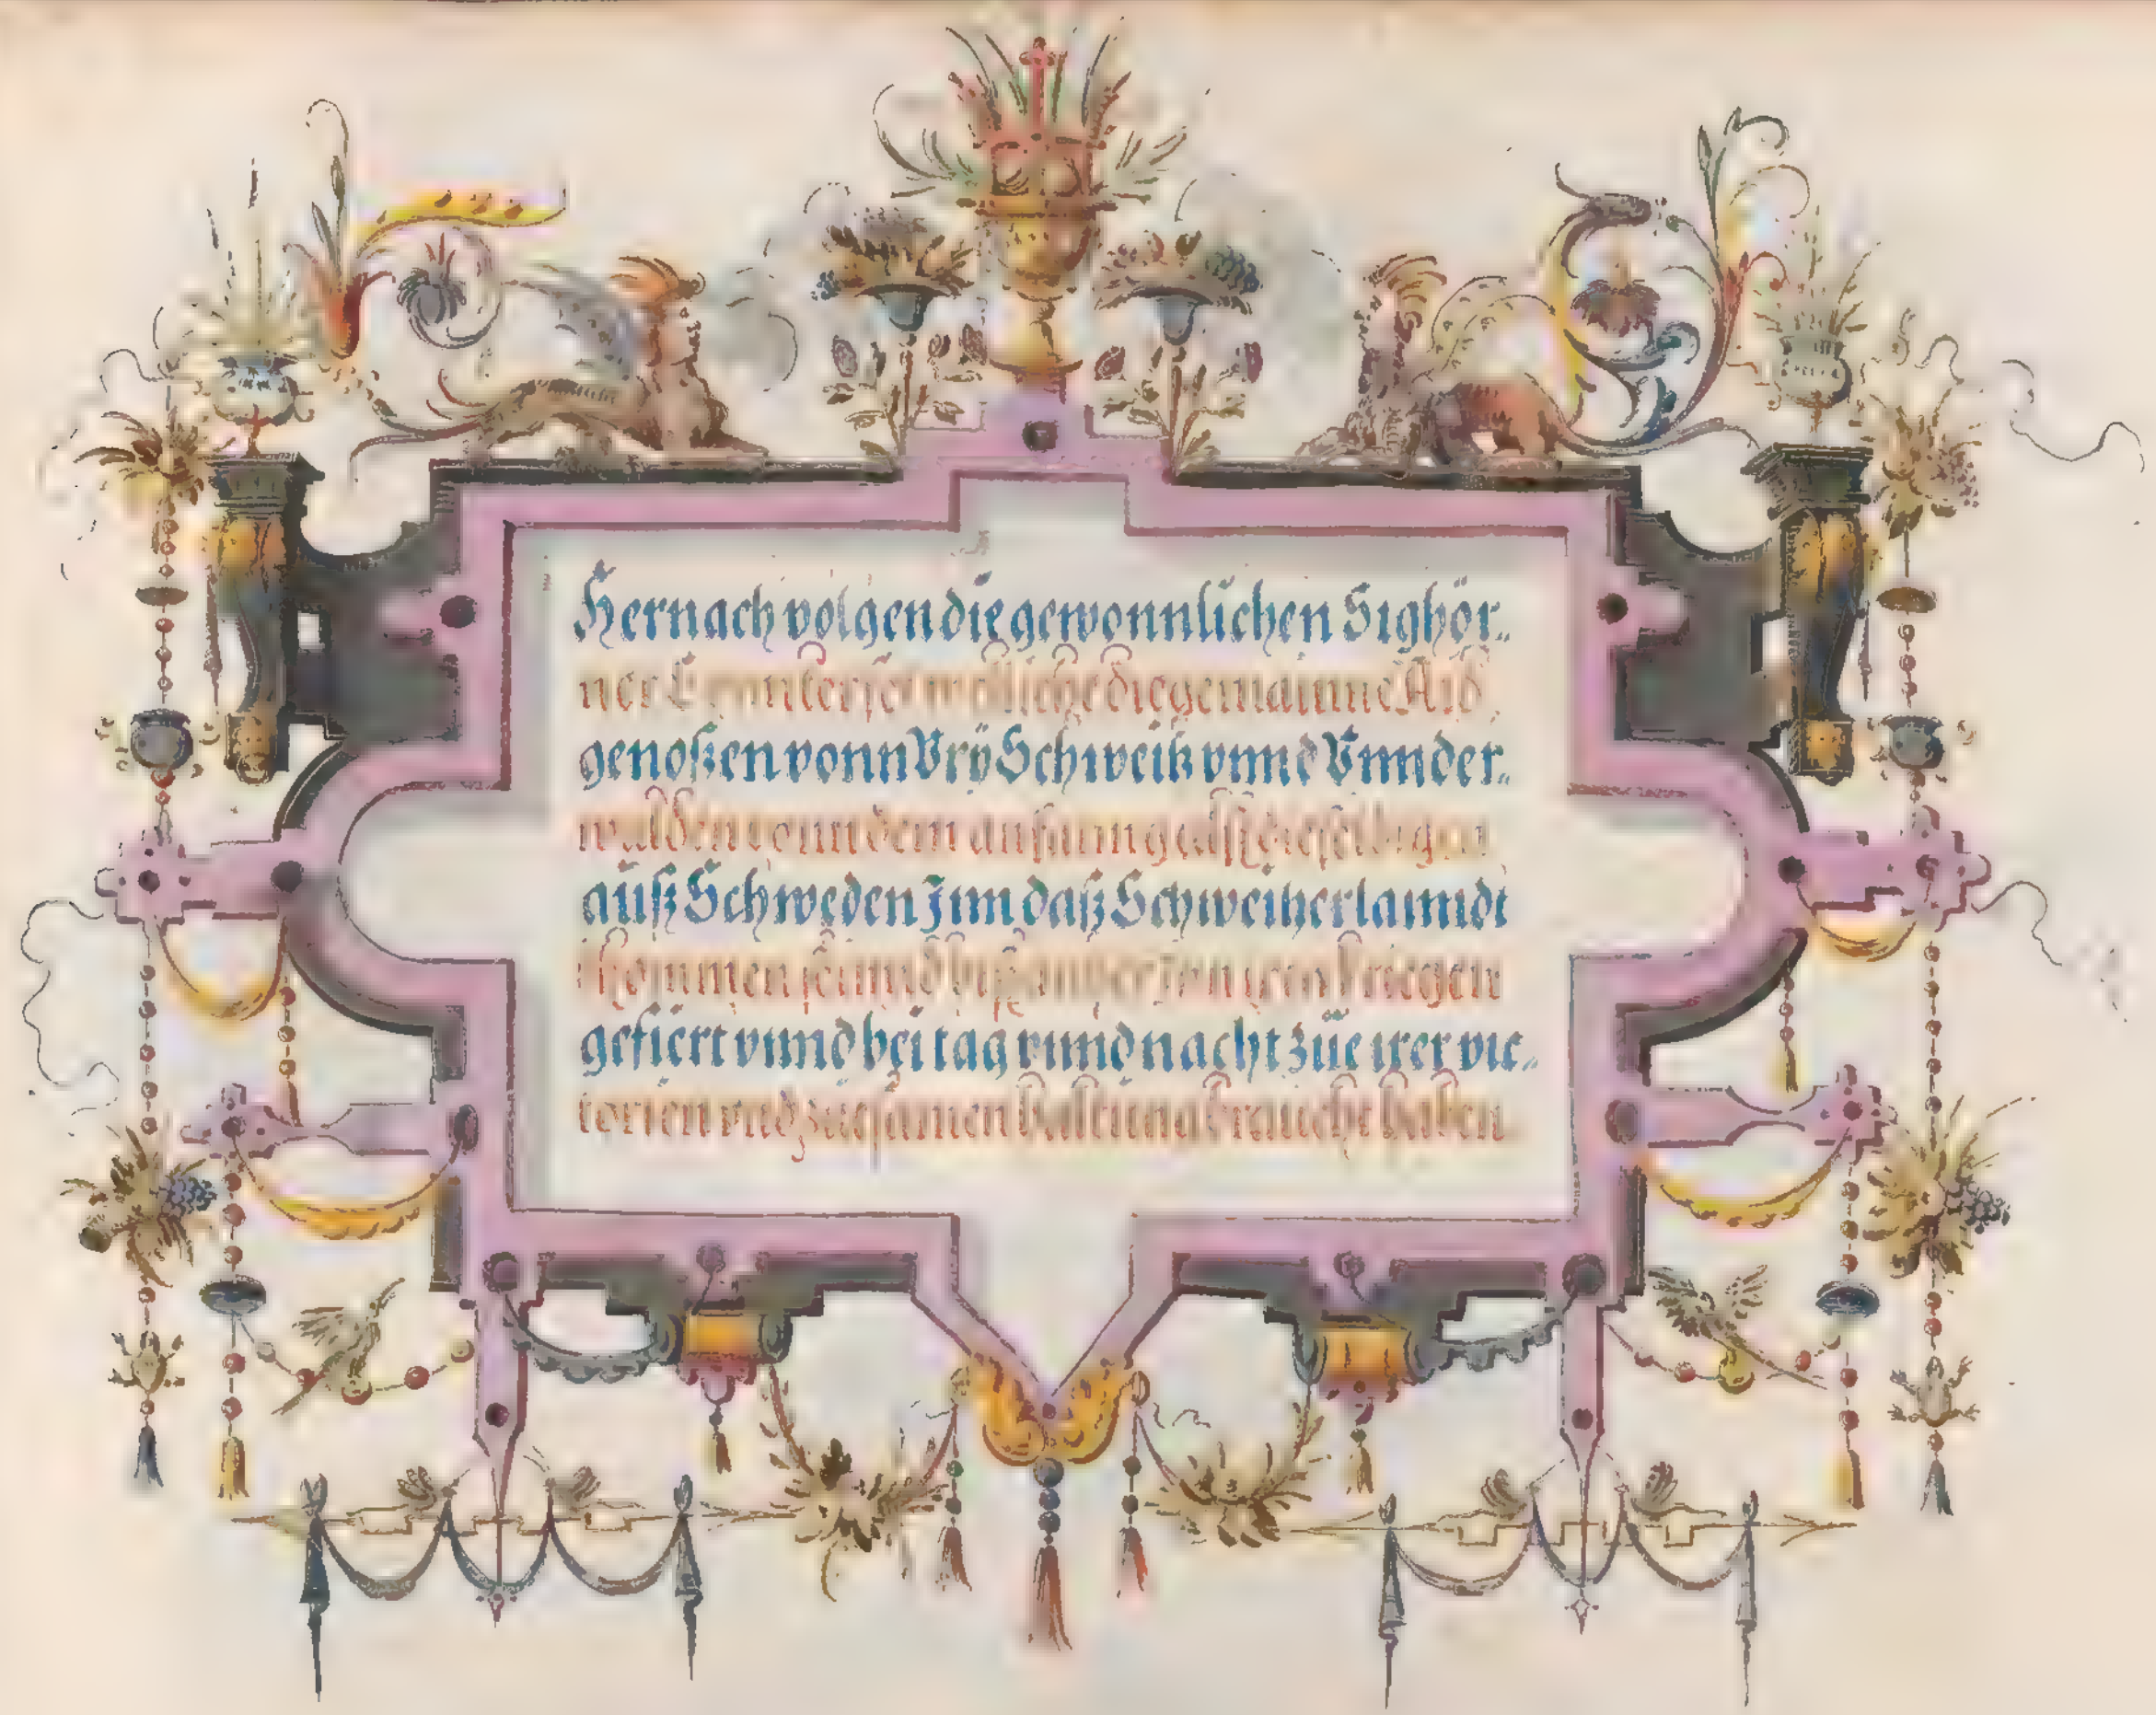 Hernach volgen die gewonnlichen Sighör„
ner welliche die gemainne Aid„
genoßen vonn Vrÿ Schweitz vnnd Vnnder„
walden vonn dem anfanng alß dieselbigen
auß Schweden Inn daß Schweitzerlanndt
khommen seinnd biß anher Inn iren kriegen
gefiert vnnd bei tag vnnd nacht züe irer vic„
torien vnd zuesamen halltung braucht haben.